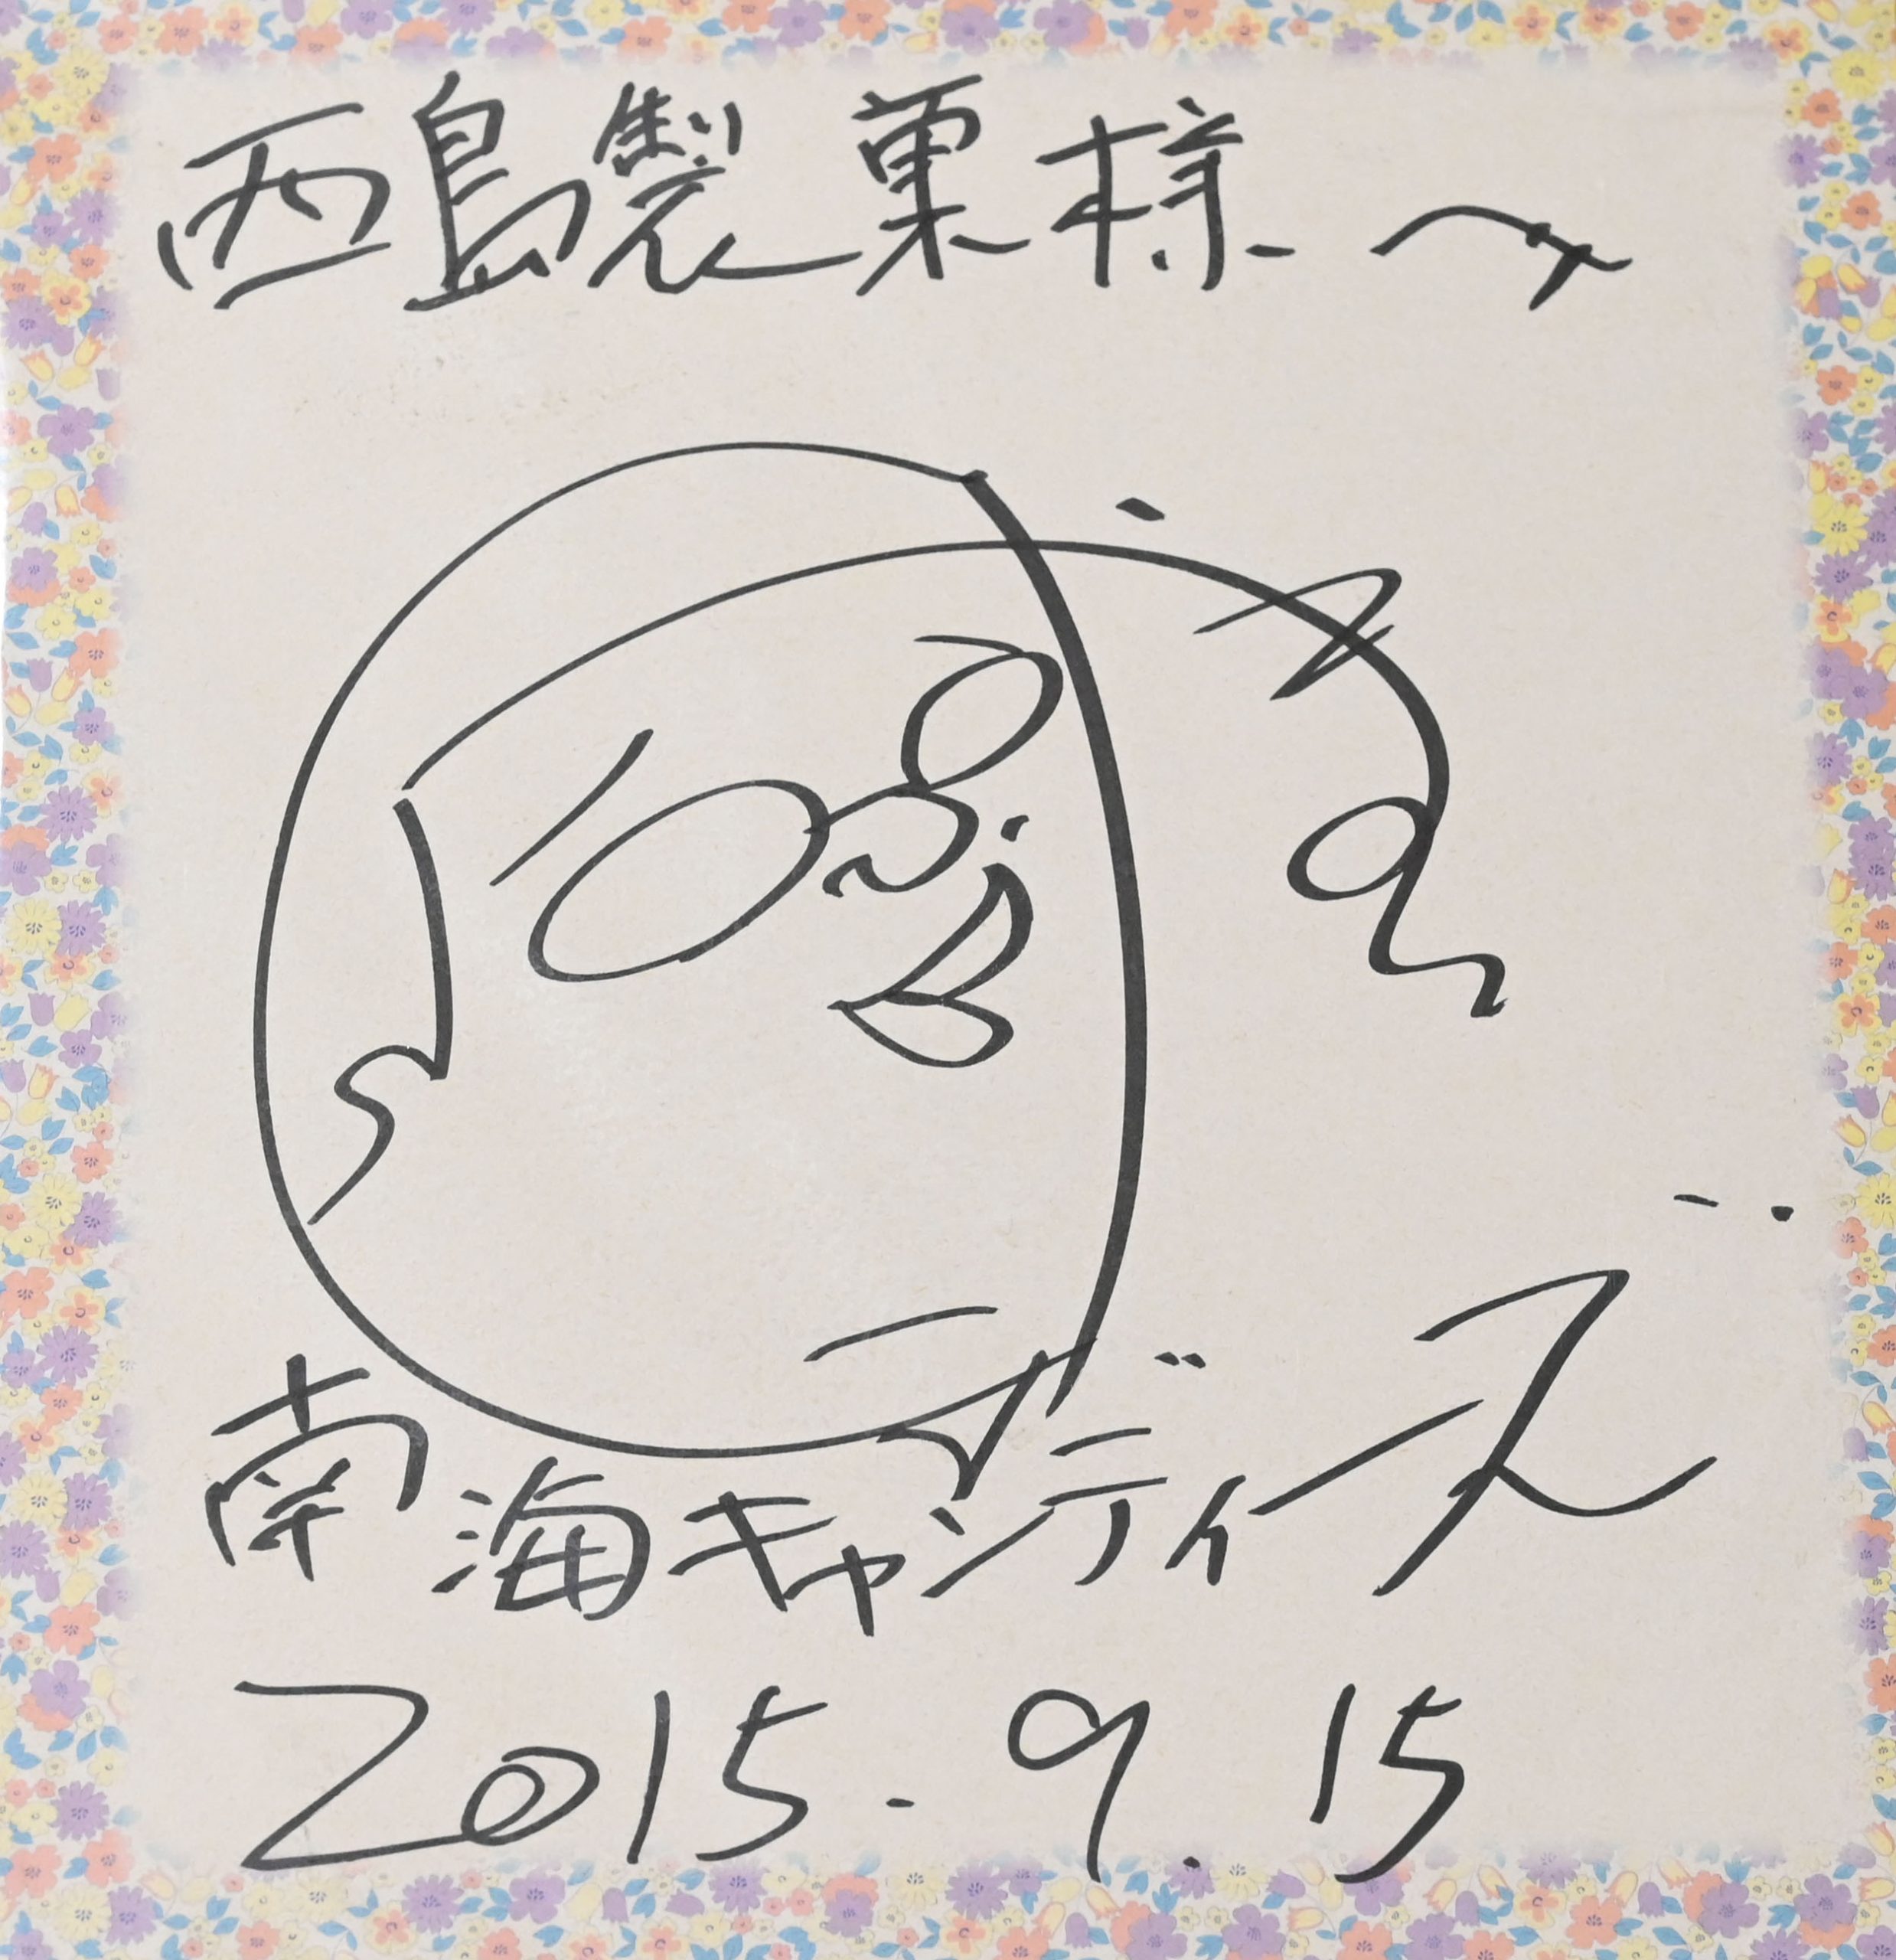 西島製菓様へ
南海キャンディーズ
2015.9.15